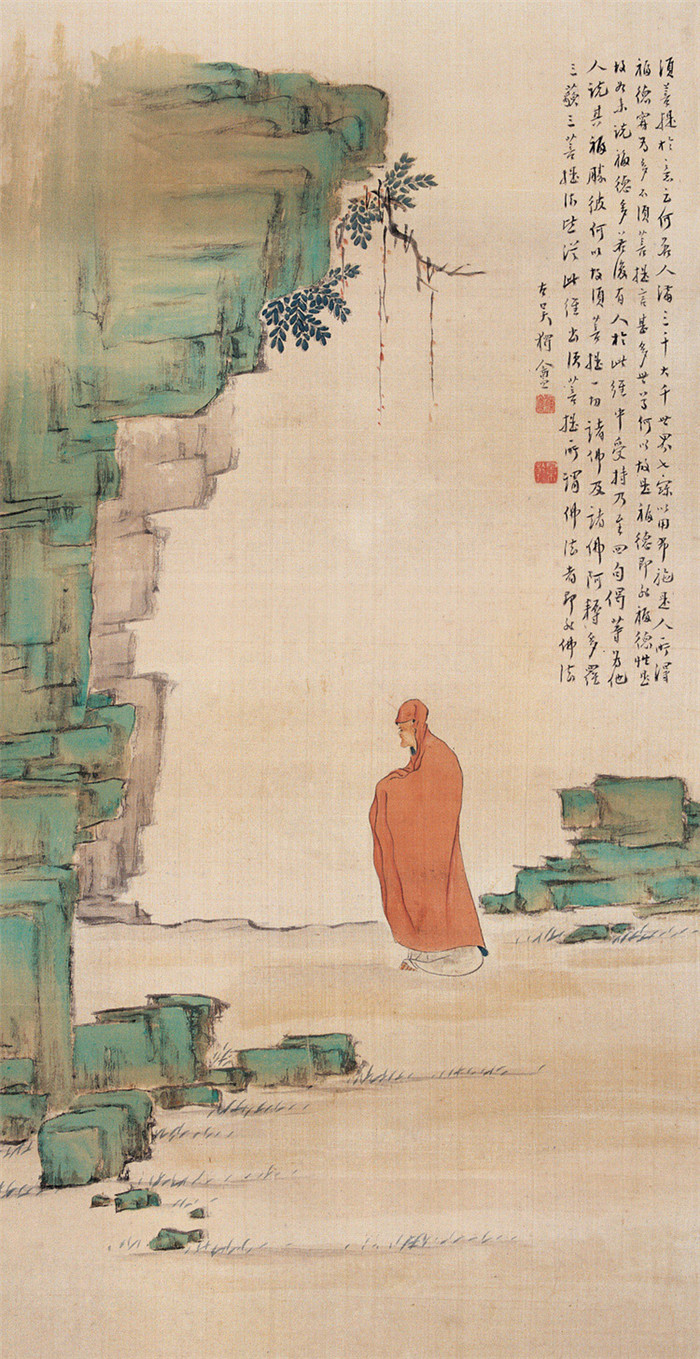 須菩提於意云何若人滿三千大千世界七寳以用布施是人所得
福德寧為多不須菩提言甚多世尊何以故是福德即非福德性是
故如来説福德多若復有人於此經中受持乃至四句偈等為他
人説其福勝彼何以故須菩提一切諸佛及諸佛阿耨多羅
三藐三菩提法皆從此經出須菩提所謂佛法者即非佛法
古吳